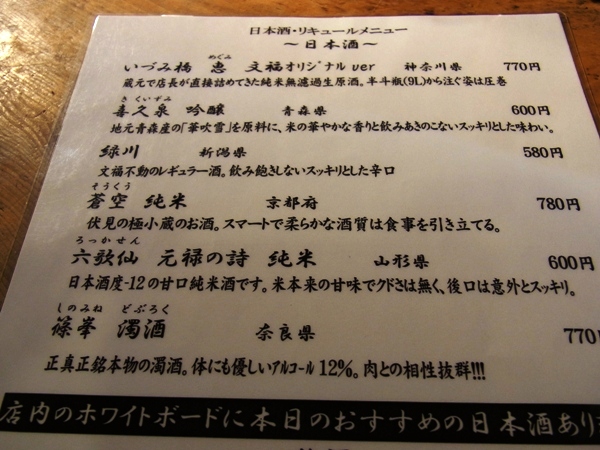 日本酒・リキュールメニュー
～日本酒～
めぐみ
いづみ橋 恵 文福オリジナルver 神奈川県 770円
蔵元で店長が直接詰めてきた純米無濾過生原酒。半斗瓶(9L)から注ぐ姿は圧巻
きくいずみ
喜久泉 吟醸 青森県 600円
地元青森産の「華吹雪」を原料に、米の華やかな香りと飲みあきのこないスッキリとした味わい。
緑川 新潟県 580円
文福不動のレギュラー酒。飲み飽きしないスッキリとした辛口
そうくう
蒼空 純米 京都府 780円
伏見の極小蔵のお酒。スマートで柔らかな酒質は食事を引き立てる。
ろっかせん
六歌仙 元禄の詩 純米 山形県 600円
日本酒度-12の甘口純米酒です。米本来の甘味でクドさは無く、後口は意外とスッキリ。
しのみね どぶろく
篠峯 濁酒 奈良県 770
正真正銘本物の濁酒。体にも優しいアルコール12%。肉との相性抜群!!!
店内のホワイトボードに本日のおすすめの日本酒あり